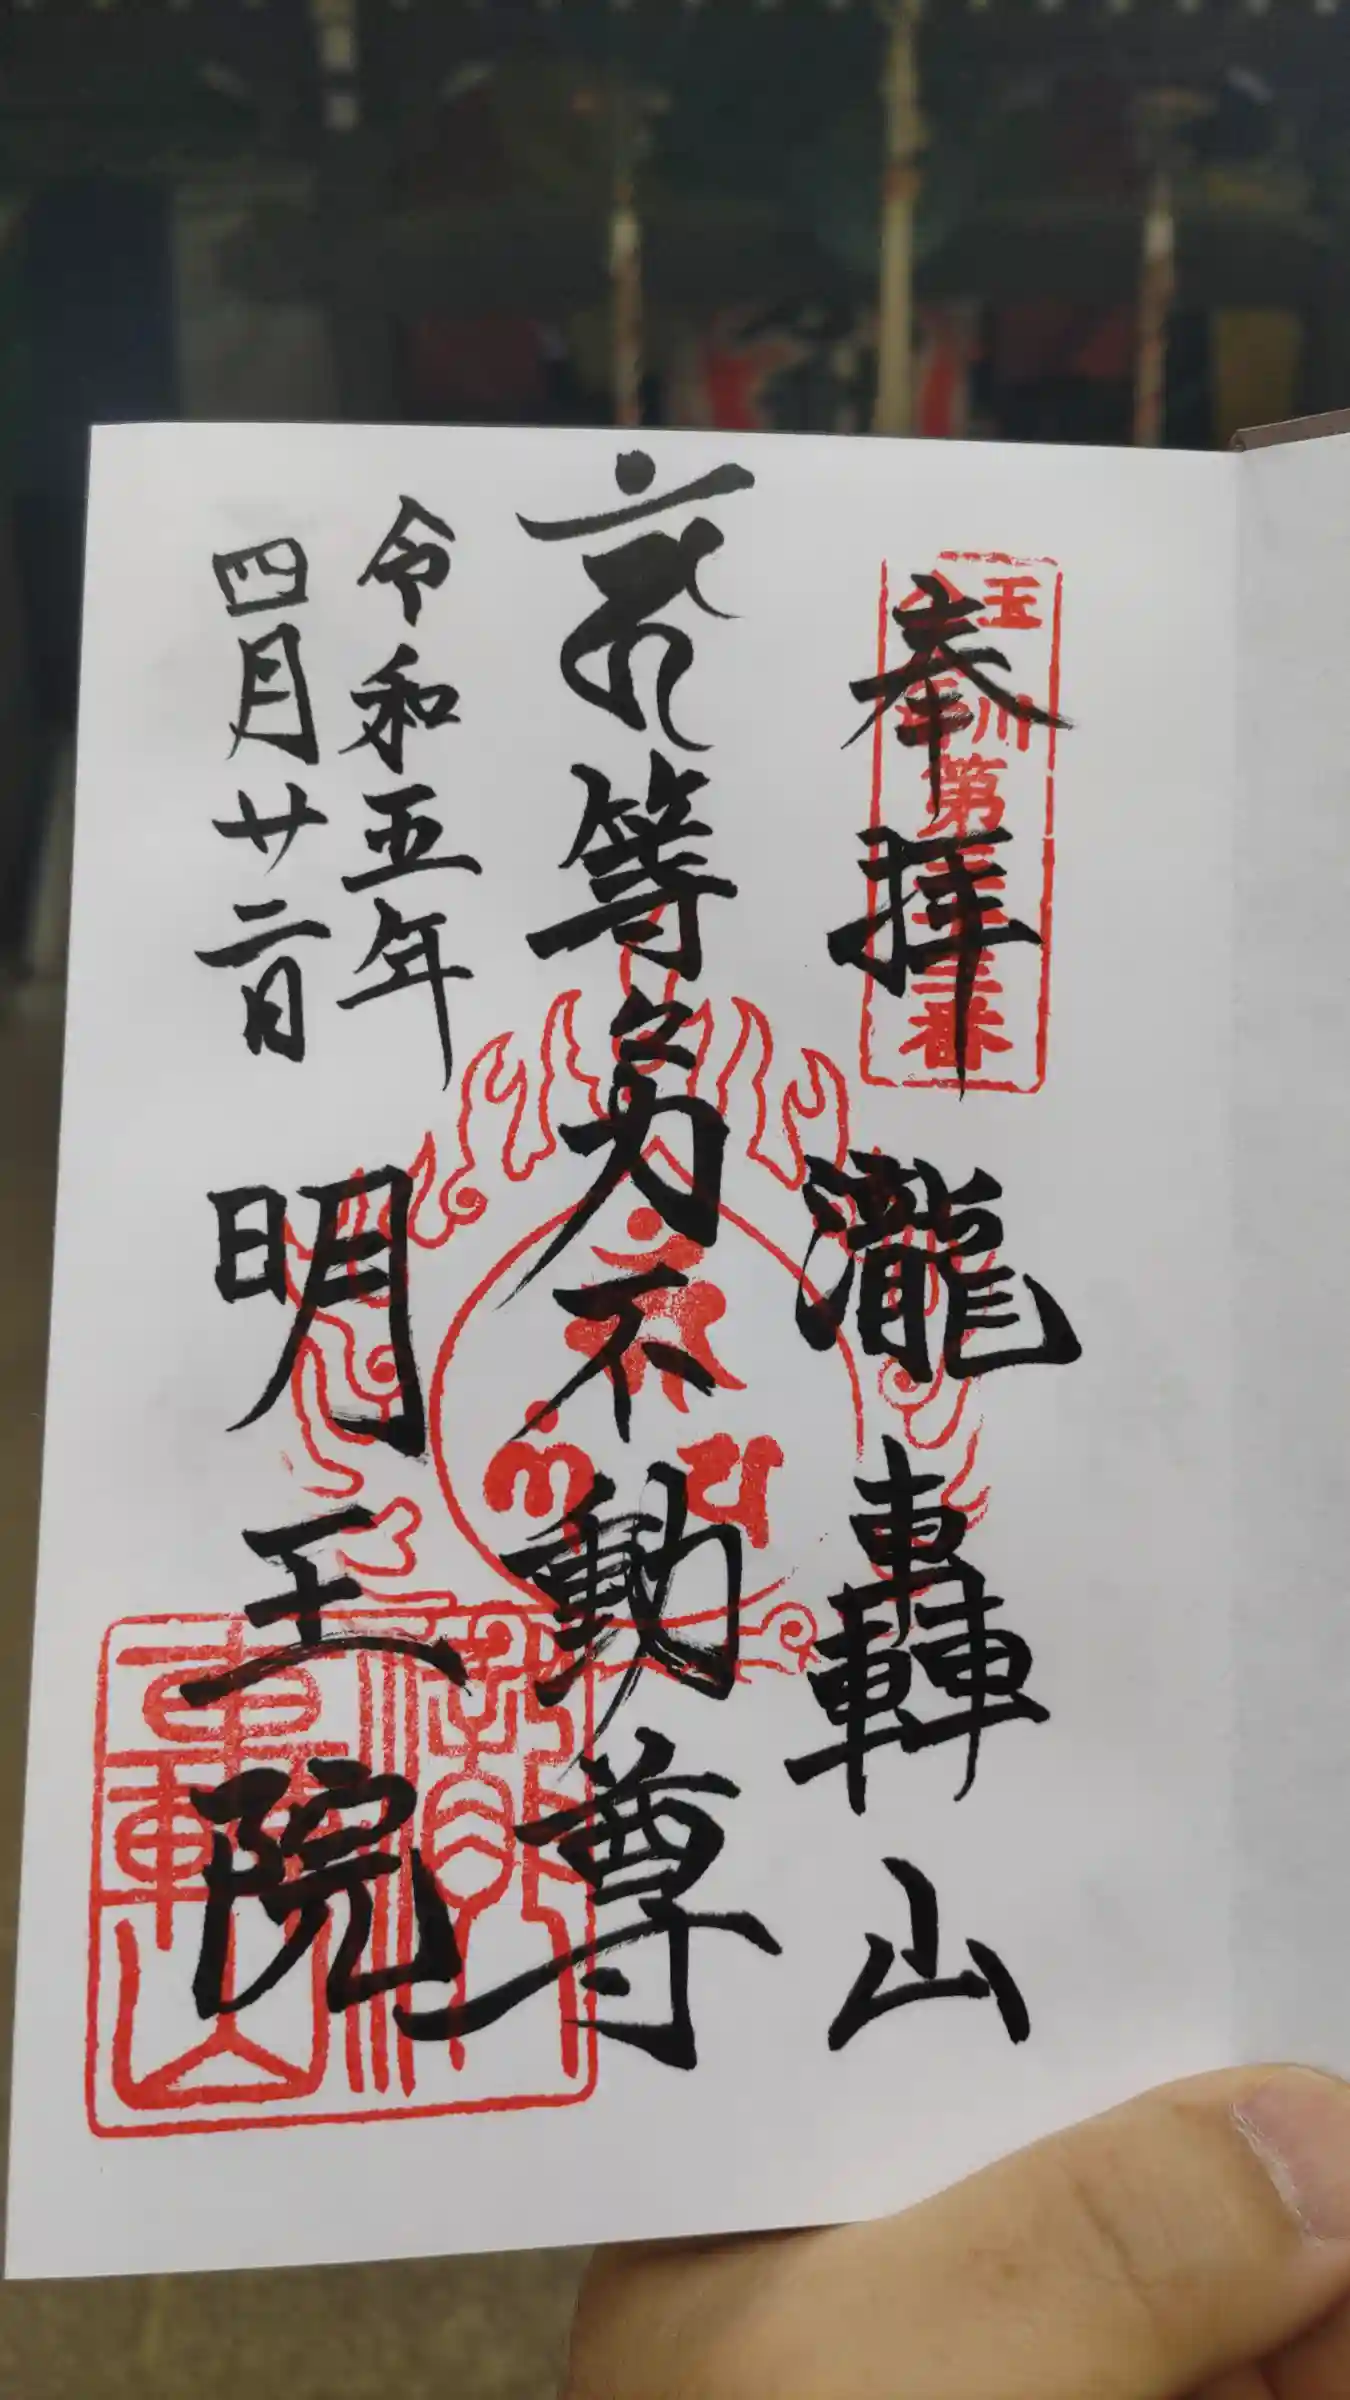 奉拝
玉川
第三十三番
瀧轟山
等々力不動尊
令和五年
四月廿二日
明王院
瀧轟山